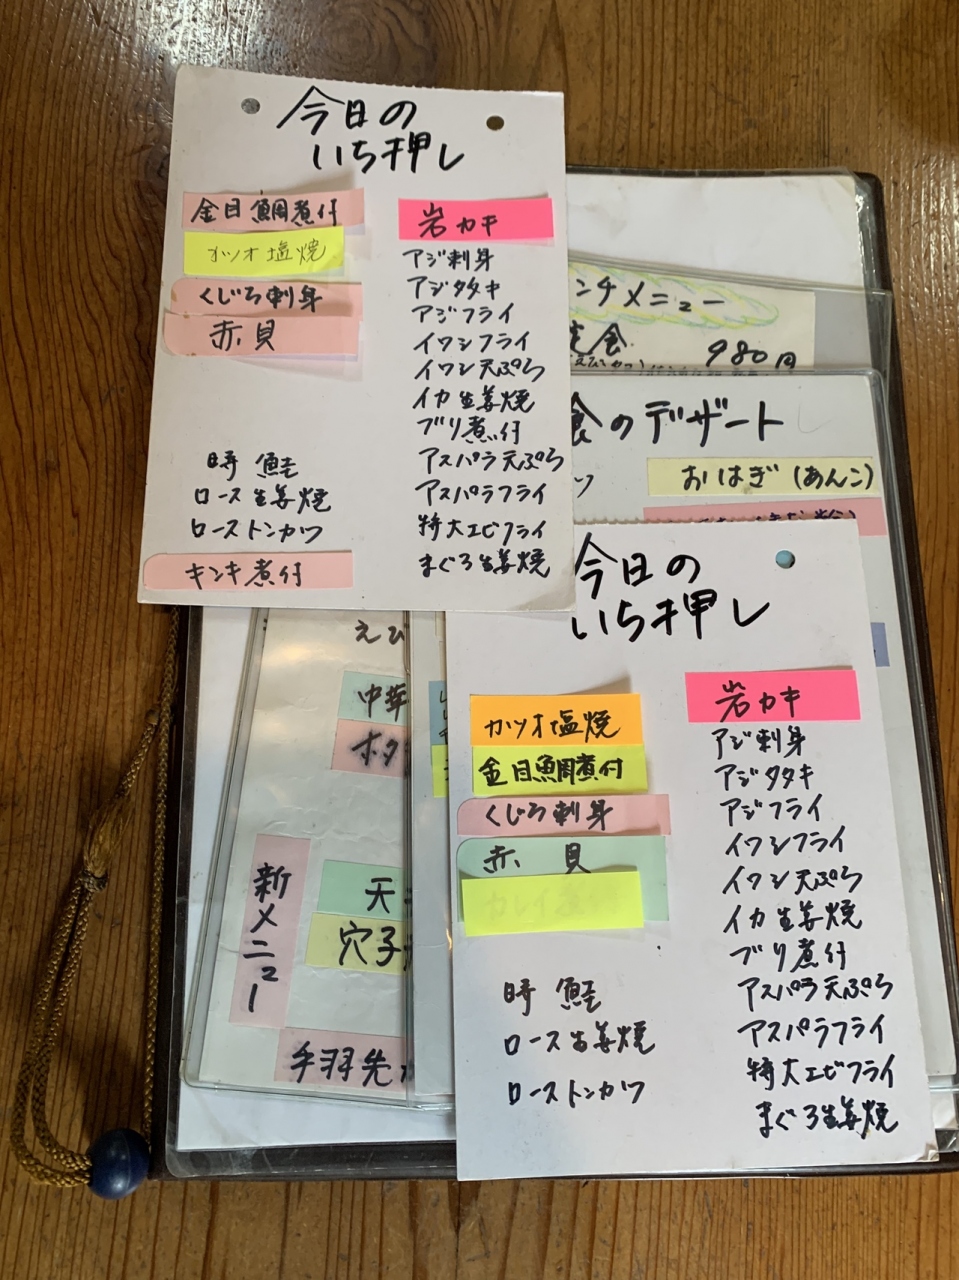 今日の
いち押し
金目鯛煮付
カツオ塩焼
くじろ刺身
赤貝
時鮭
ロース生姜焼
ローストンカツ
キンキ煮付
岩カキ
アジ刺身
アジタタキ
アジフライ
イワシフライ
イワシ天ぷら
イカ生姜焼
ブリ煮付
アスパラ天ぷら
アスパラフライ
特大エビフライ
まぐろ生姜焼
ンチメニュー
定食
980円
食のデザート
ツ
おはぎ(あんこ)
えび
中華
ホタ
天
穴子
新メニュー
手羽先
今日の
いち押し
カツオ塩焼
金目鯛煮付
くじろ刺身
赤貝
時鮭
ロース生姜焼
ローストンカツ
岩カキ
アジ刺身
アジタタキ
アジフライ
イワシフライ
イワシ天ぷら
イカ生姜焼
ブリ煮付
アスパラ天ぷら
アスパラフライ
特大エビフライ
まぐろ生姜焼